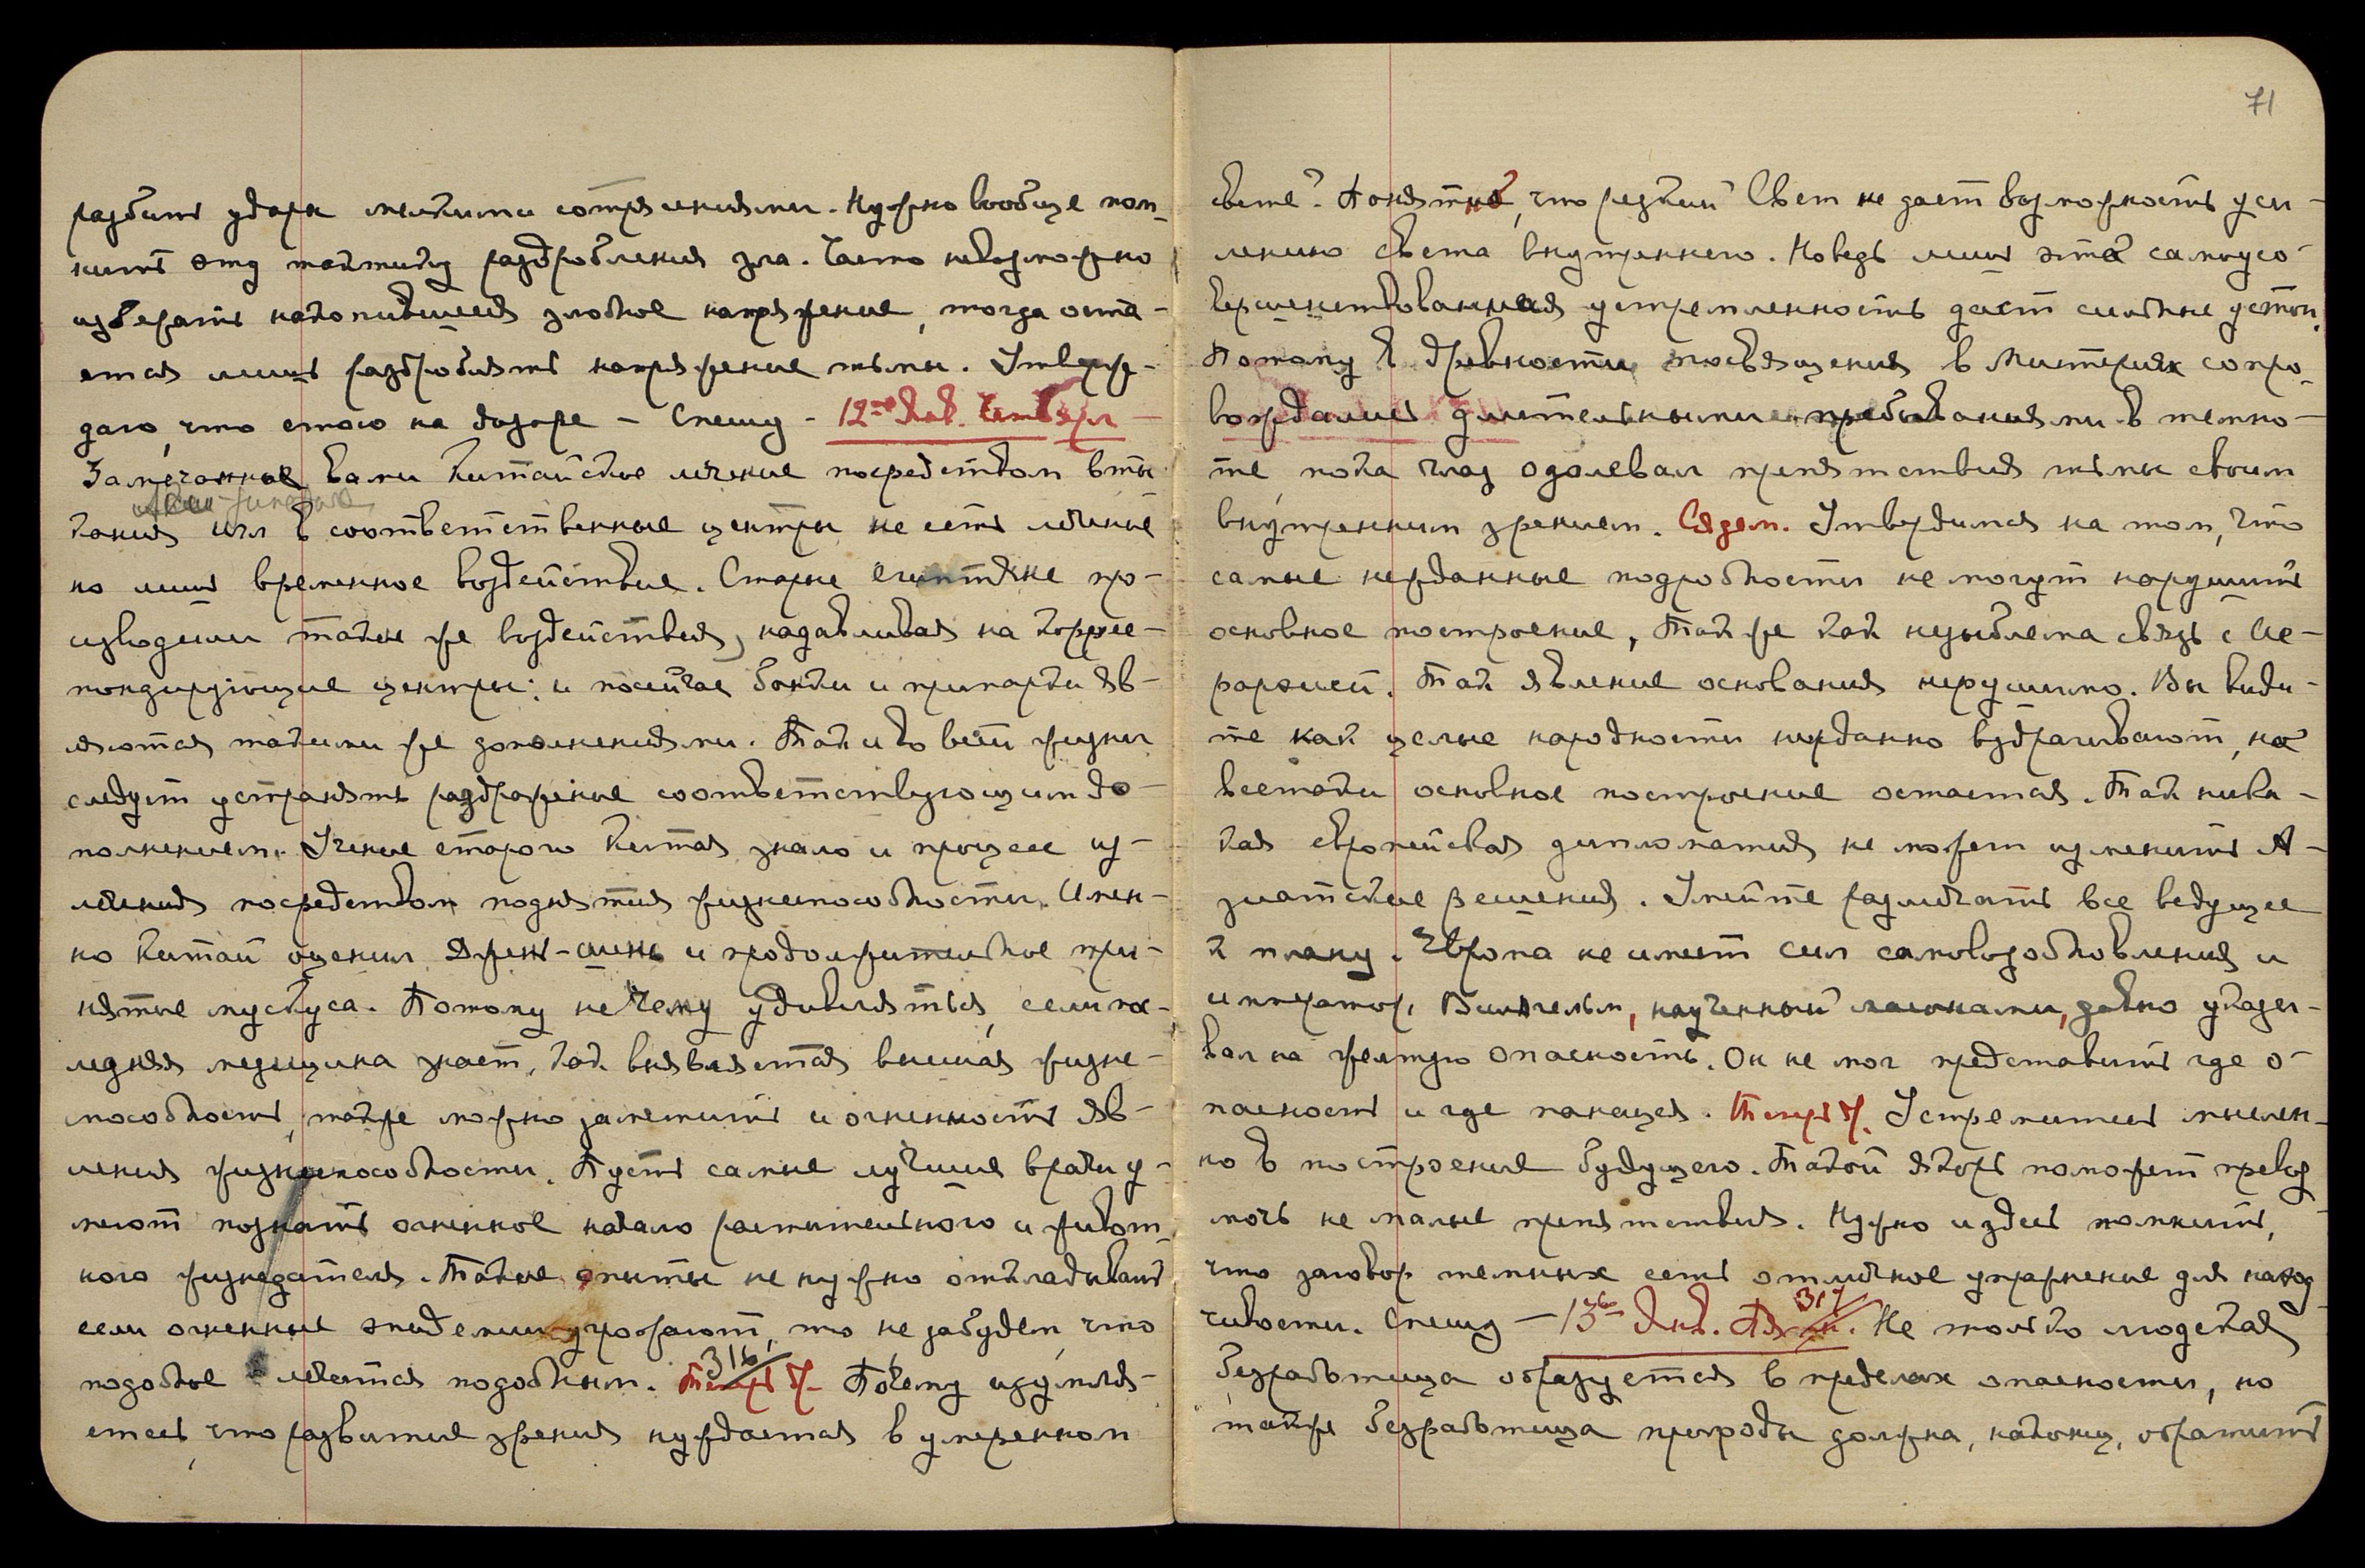 разбить удары мелкими сотрясениями. Нужно вообще пом-
нить эту тактику раздробления зла. Часто невозможно
избежать накопившееся злобное напряжение, тогда оста-
ется лишь раздроблять напряжение тьмы. Утверж-
даю, что стою на дозоре – Спешу – 12-го Янв. Четверг –
Замечанное вами Китайское лечение посредством вты-
кания игл в соответственные центры не есть лечение
но лишь временное воздействие. Старые египтяне про-
изводили такие же воздействия, надавливая на коррес-
пондирующие центры; и посейчас банки и припарки яв-
ляются такими же дополнениями. Так и во всей жизни
следует устранять раздражение соответствующим до-
полнением. Учение старого Китая знало и процесс из-
лечения посредством поднятия жизнеспособности. Имен-
но Китай оценил Жень-шень и продолжительное при-
нятие мускуса. Потому не чему удивляться, если пос-
ледняя медицина знает, как выявляется высшая жизне-
пособность, также можно заметить и огненность яв-
ления жизнеспособности. Пусть самые лучшие врачи у-
меют познать огненное начало растительного и живот-
ного жизнедателя. Такие опыты не нужно откладывать
если огненные эпидемии угрожают, то не забудем, что
подобное лечится подобным. 316, Теперь Почему изумля-
етесь, что развитие зрения нуждается в умеренном
71
свете? Понятно, что резкий Свет не дает возможность уси-
лению света внутреннего. Но ведь лишь эта самоусо-
вершенствованная устремленность дает сильные устои.
Потому в древности посвящения в Мистериях сопро-
вождались длительными пребываниями в темно-
те, пока глаз одолевал препятствия тьмы своим
внутренним зрением. Сядем. Утвердимся на том, что
самые нежданные подробности не могут нарушить
основное построение, Так же как незыблема связь с Ие-
рархией. Так явление основания нерушимо. Вы види-
те как целые народности нежданно вздрагивают, но
всетаки основное построение остается. Так ника-
кая европейская дипломатия не может изменить А-
зиатские решения. Умейте различать все ведущее
к плану. Европа не имеет сил самовозобновления и
император Вильгельм, наученный масонами, давно указы-
вал на желтую опасность. Он не мог представить где о-
пасность и где панацея. Теперь Устремитесь мыслен-
но в построение будущего. Такой якорь поможет превоз-
мочь не малые препятствия. Нужно и здесь помнить,
что заговор темных есть отличное упражнение для наход-
чивости. Спешу – 13-го Янв. 317 Не только людская
безработица образуется в пределах опасности, но
также безработица природы должна, наконец, обратить